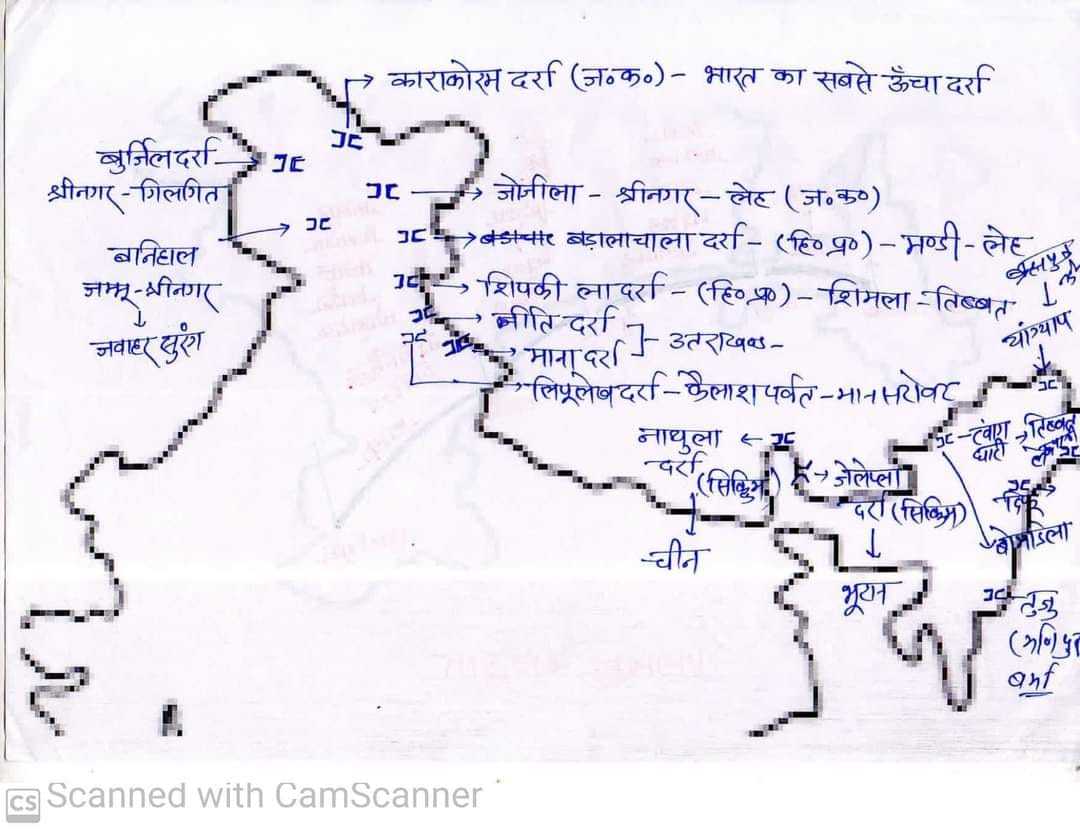 काराकोरम दर्रा (ज०क०) - भारत का सबसे ऊँचा दर्रा
बुर्जिल दर्रा
श्रीनगर - गिलगित
जोजीला - श्रीनगर - लेह (ज०क०)
बानिहाल
जम्मू - श्रीनगर
जवाहर सुरंग
बड़ालाचाला दर्रा - (हि० प्र०) - मण्डी - लेह
शिपकी ला दर्रा - (हि० प्र०) - शिमला - तिब्बत
नीति दर्रा
माना दर्रा
उतराखण्ड -
लिपूलेख दर्रा - कैलाश पर्वत - मानसरोवर
यांग्याप
नाथुला
दर्रा
(सिक्किम)
चीन
जेलेप्ला
दर्रा (सिक्किम)
भूटान
तवांग
घाटी
तिब्बत
दिफू
बोमडिला
तुजु
बर्मा
CS Scanned with CamScanner